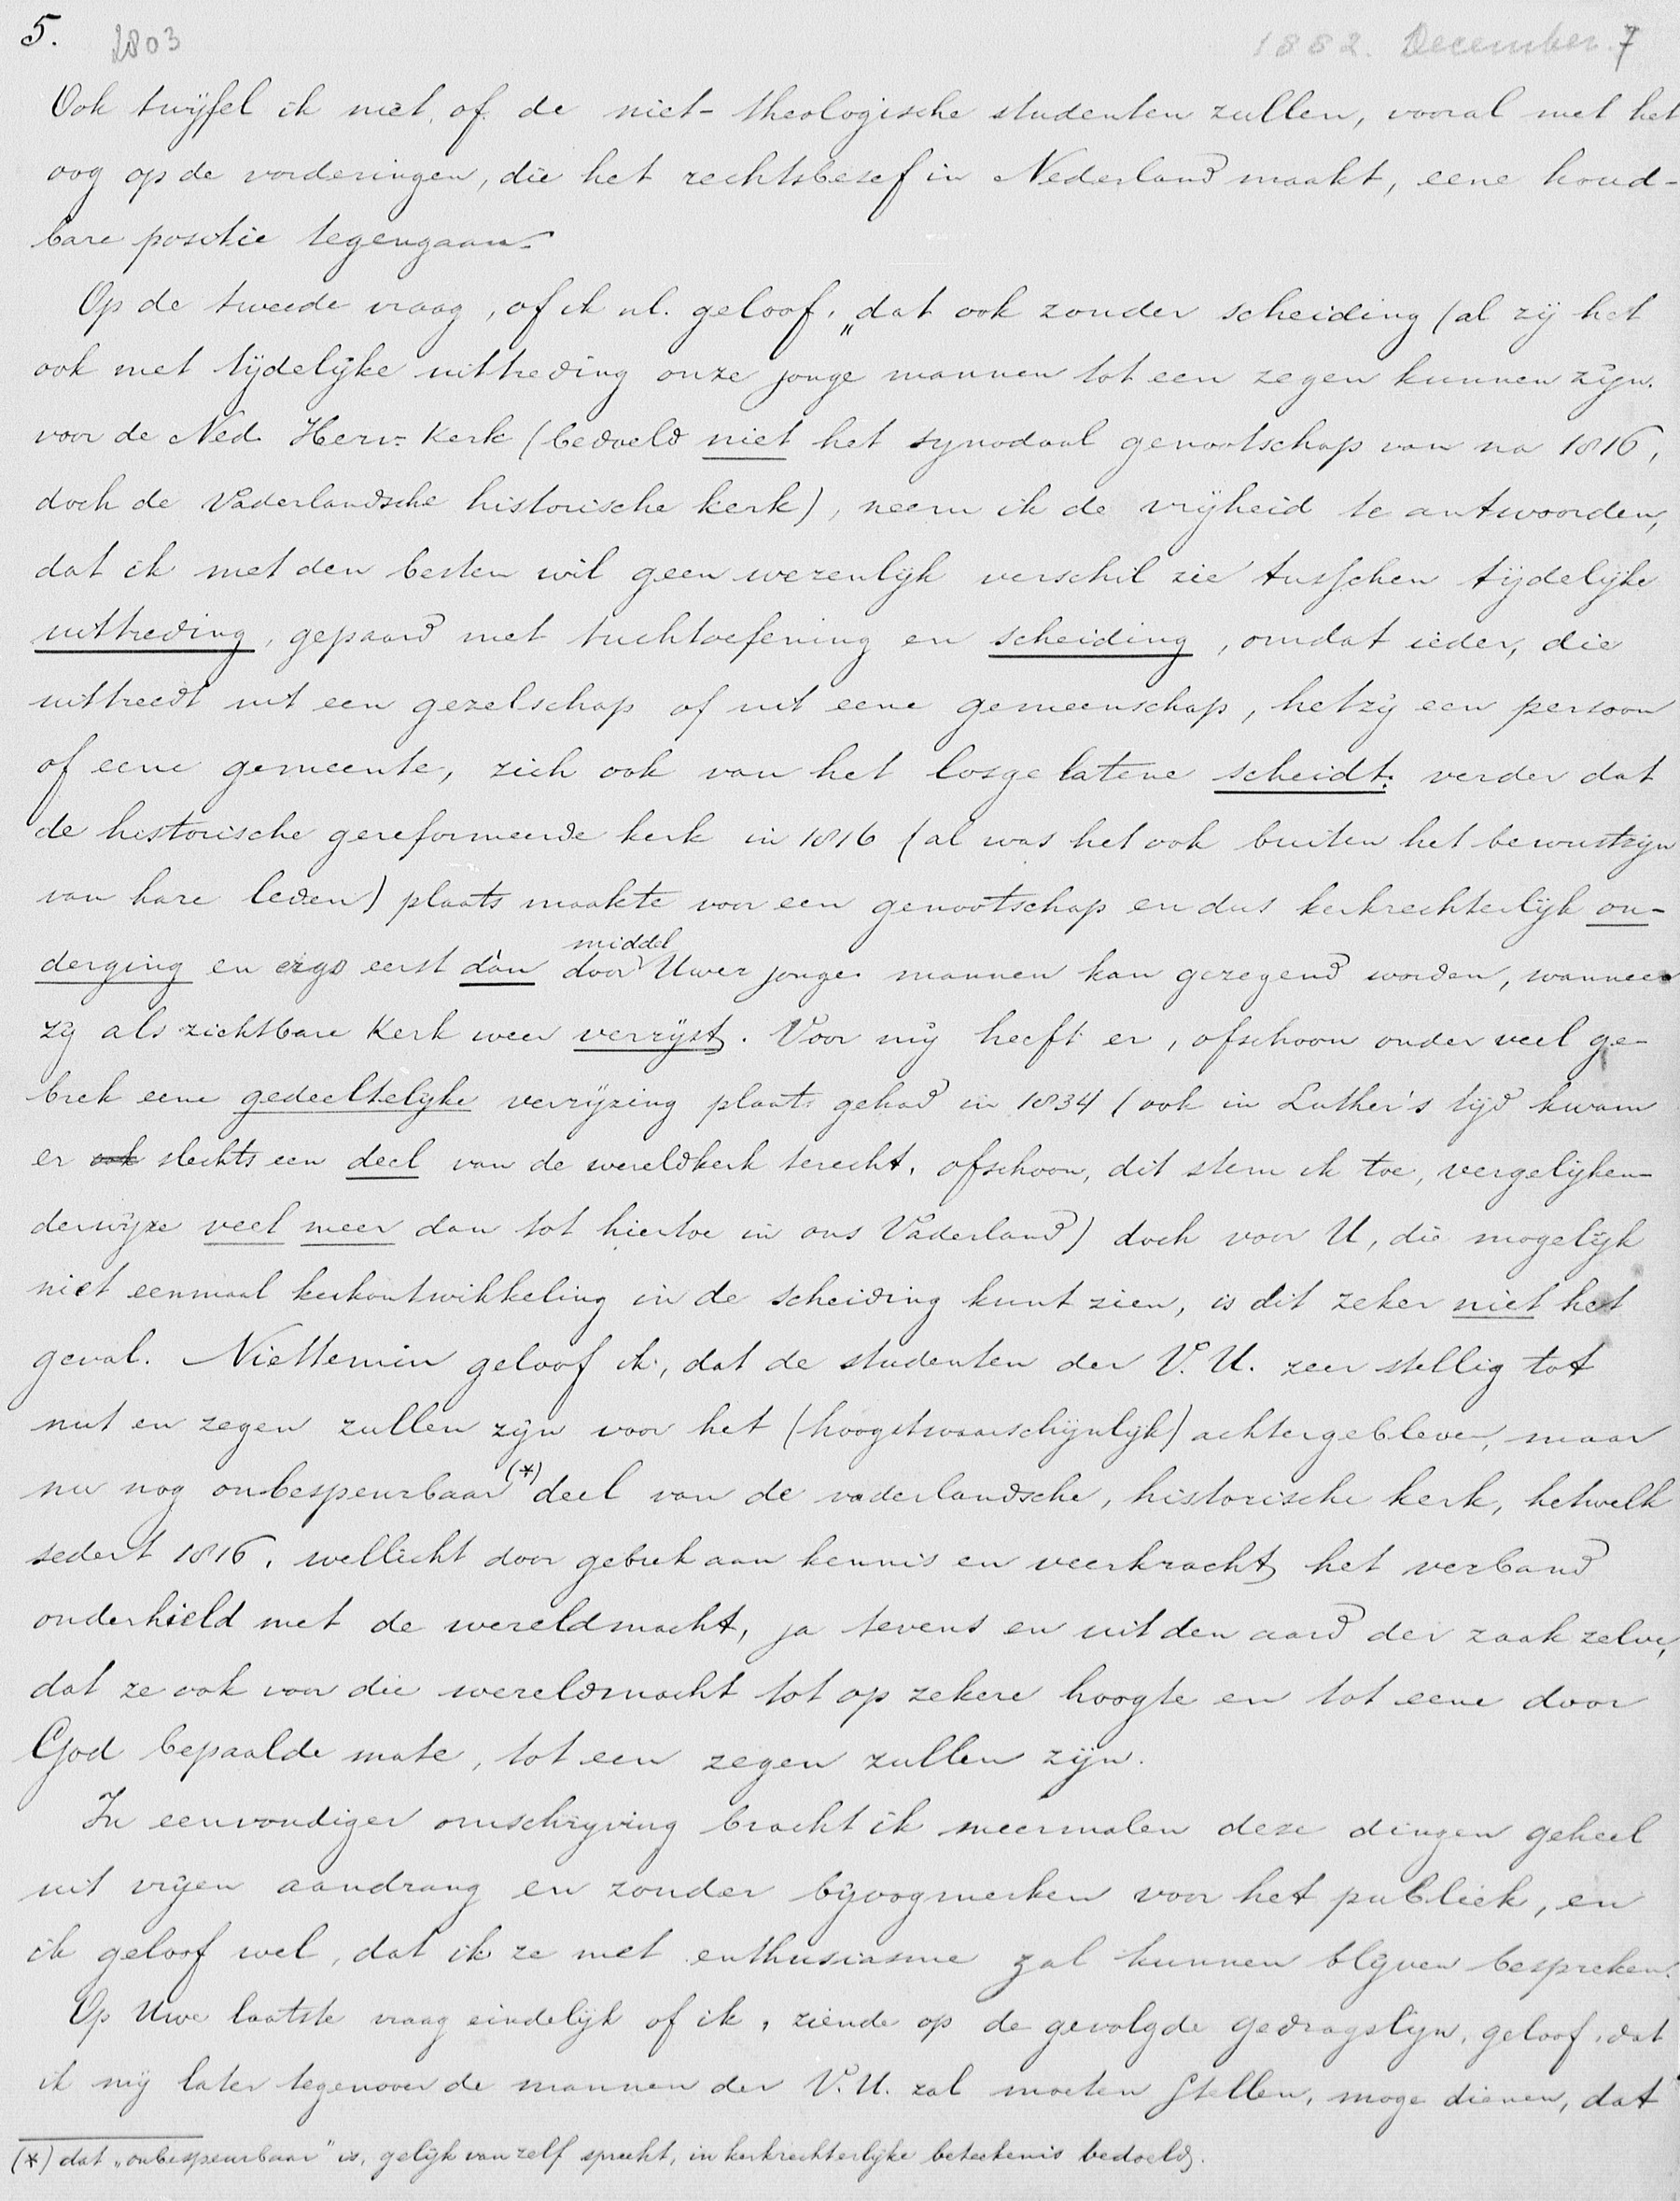 5. 2803 1882. December 7
Ook twijfel ik niet, of de niet-theologische studenten zullen, vooral met het
oog op de vorderingen, die het rechtsbesef in Nederland maakt, eene houd-
bare positie tegengaan.
Op de tweede vraag, of ik nl. geloof, „dat ook zonder scheiding (al zij het
ook met tijdelijke uittreding onze jonge mannen tot een zegen kunnen zijn.
voor de Ned. Herv. Kerk (bedoeld niet het synodaal genootschap van na 1816,
doch de Vaderlandsche historische kerk), neem ik de vrijheid te antwoorden,
dat ik met den besten wil geen wezenlijk verschil zie tusschen tijdelijke
uittreding, gepaard met tuchtoefening en scheiding, omdat ieder, die
uittreedt uit een gezelschap of uit eene gemeenschap, hetzij een persoon
of eene gemeente, zich ook van het losgelatene scheidt; verder dat
de historische gereformeerde kerk in 1816 (al was het ook buiten het bewustzijn
van hare leden) plaats maakte voor een genootschap en dus kerkrechterlijk on-
derging en ergo eerst dàn door middel Uwer jonge mannen kan gezegend worden, wanneer
zij als zichtbare Kerk weer verrijst. Voor mij heeft er, ofschoon onder veel ge-
brek eene gedeeltelijke verrijzing plaats gehad in 1834 (ook in Luther's tijd kwam
er ook slechts een deel van de wereldkerk terecht, ofschoon, dit stem ik toe, vergelijken-
derwijze veel meer dan tot hiertoe in ons Vaderland) doch voor U, die mogelijk
niet eenmaal kerkontwikkeling in de scheiding kunt zien, is dit zeker niet het
geval. Niettemin geloof ik, dat de studenten der V. U. zeer stellig tot
nut en zegen zullen zijn voor het (hoogstwaarschijnlijk) achtergebleven, maar
nu nog onbespeurbaar (*) deel van de vaderlandsche, historische kerk, hetwelk
sedert 1816, wellicht door gebrek aan kennis en veerkracht, het verband
onderhield met de wereldmacht, ja tevens en uit den aard der zaak zelve,
dat ze ook voor die wereldmacht tot op zekere hoogte en tot eene door
God bepaalde mate, tot een zegen zullen zijn.
In eenvoudiger omschrijving bracht ik meermalen deze dingen geheel
uit vrijen aandrang en zonder bijoogmerken voor het publiek, en
ik geloof wel, dat ik ze met enthusiasme zal kunnen blijven bespreken.
Op Uwe laatste vraag eindelijk of ik, ziende op de gevolgde gedragslijn, geloof, dat
ik mij later tegenover de mannen der V. U. zal moeten stellen, moge dienen, dat
(*) dat „onbespeurbaar" is, gelijk van zelf spreekt, in kerkrechterlijke beteekenis bedoeld.